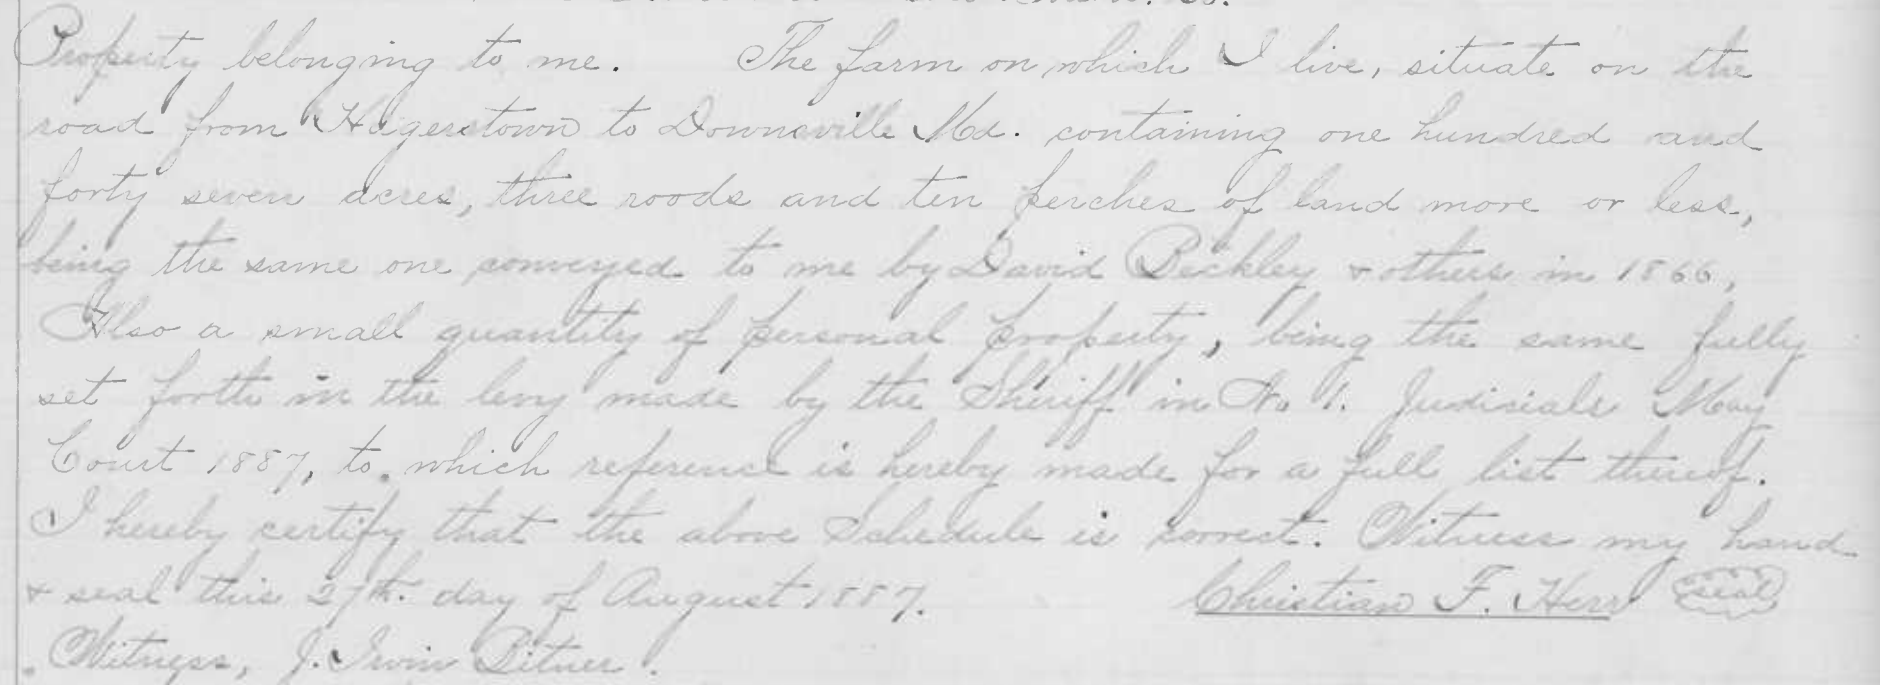 Property belonging to me. The farm on which I live, situate on the
road from Hagerstown to Downsville Md. containing one hundred and
forty seven acres, three roods and ten perches of land more or less,
being the same one conveyed to me by David Beckley & others in 1866,
Also a small quantity of personal property, being the same fully
set forth in the levy made by the Sheriff in No 1. Judicials May
Court 1887, to which reference is hereby made for a full list thereof.
I hereby certify that the above Schedule is correct. Witness my hand
& seal this 27th. day of August 1887. Christian F. Herr seal
Witness, J. Irvin Bitner.